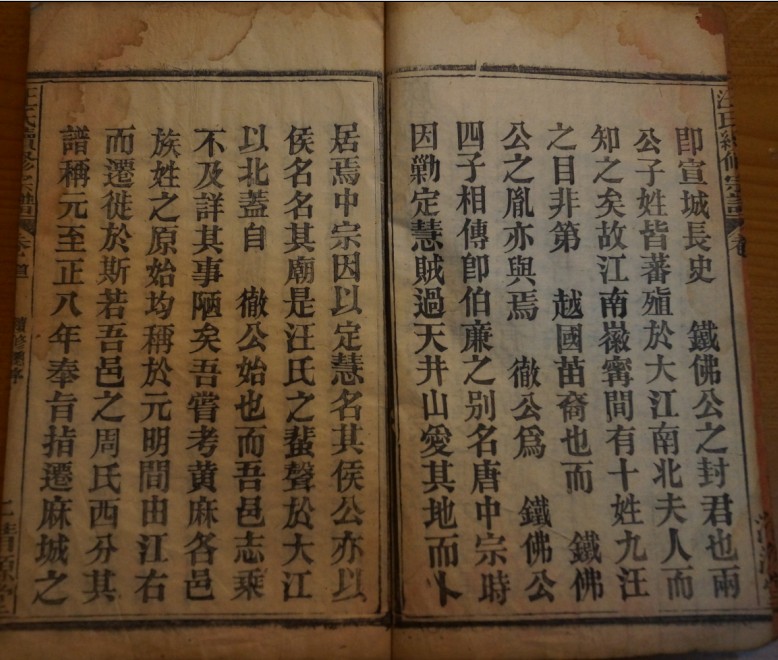 即宣城長史　鐵佛公之封君也兩
公子姓皆蕃殖於大江南北夫人而
知之矣故江南徽甯間有十姓九汪
之目非第　越國苗裔也而　鐵佛
公之胤亦與焉　徹公爲　鐵佛公
四子相傳卽伯廉之别名唐中宗時
因勦定慧賊過天井山愛其地而卜
居焉中宗因以定慧名其侯公亦以
侯名名其廟是汪氏之蜚聲於大江
以北蓋自　徹公始也而吾邑志乘
不及詳其事陋矣吾嘗考黄麻各邑
族姓之原始均稱於元明間由江右
而遷徙於斯若吾邑之周氏西分其
譜稱元至正八年奉旨指遷麻城之
汪氏續修宗譜
卷首
續修譜序